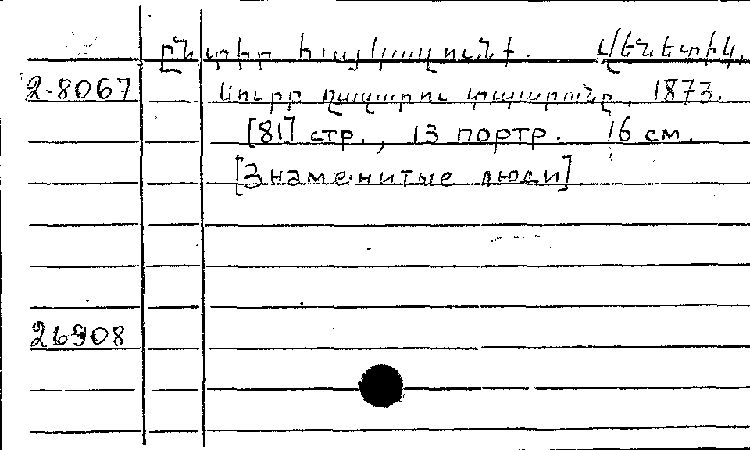 ընտիր հայկազունք. Վենետիկ,
2-8067 Սուրբ Ղազարու տպարանը, 1873.
[81] стр., 13 портр. 16 см.
[Знаменитые люди]
26908